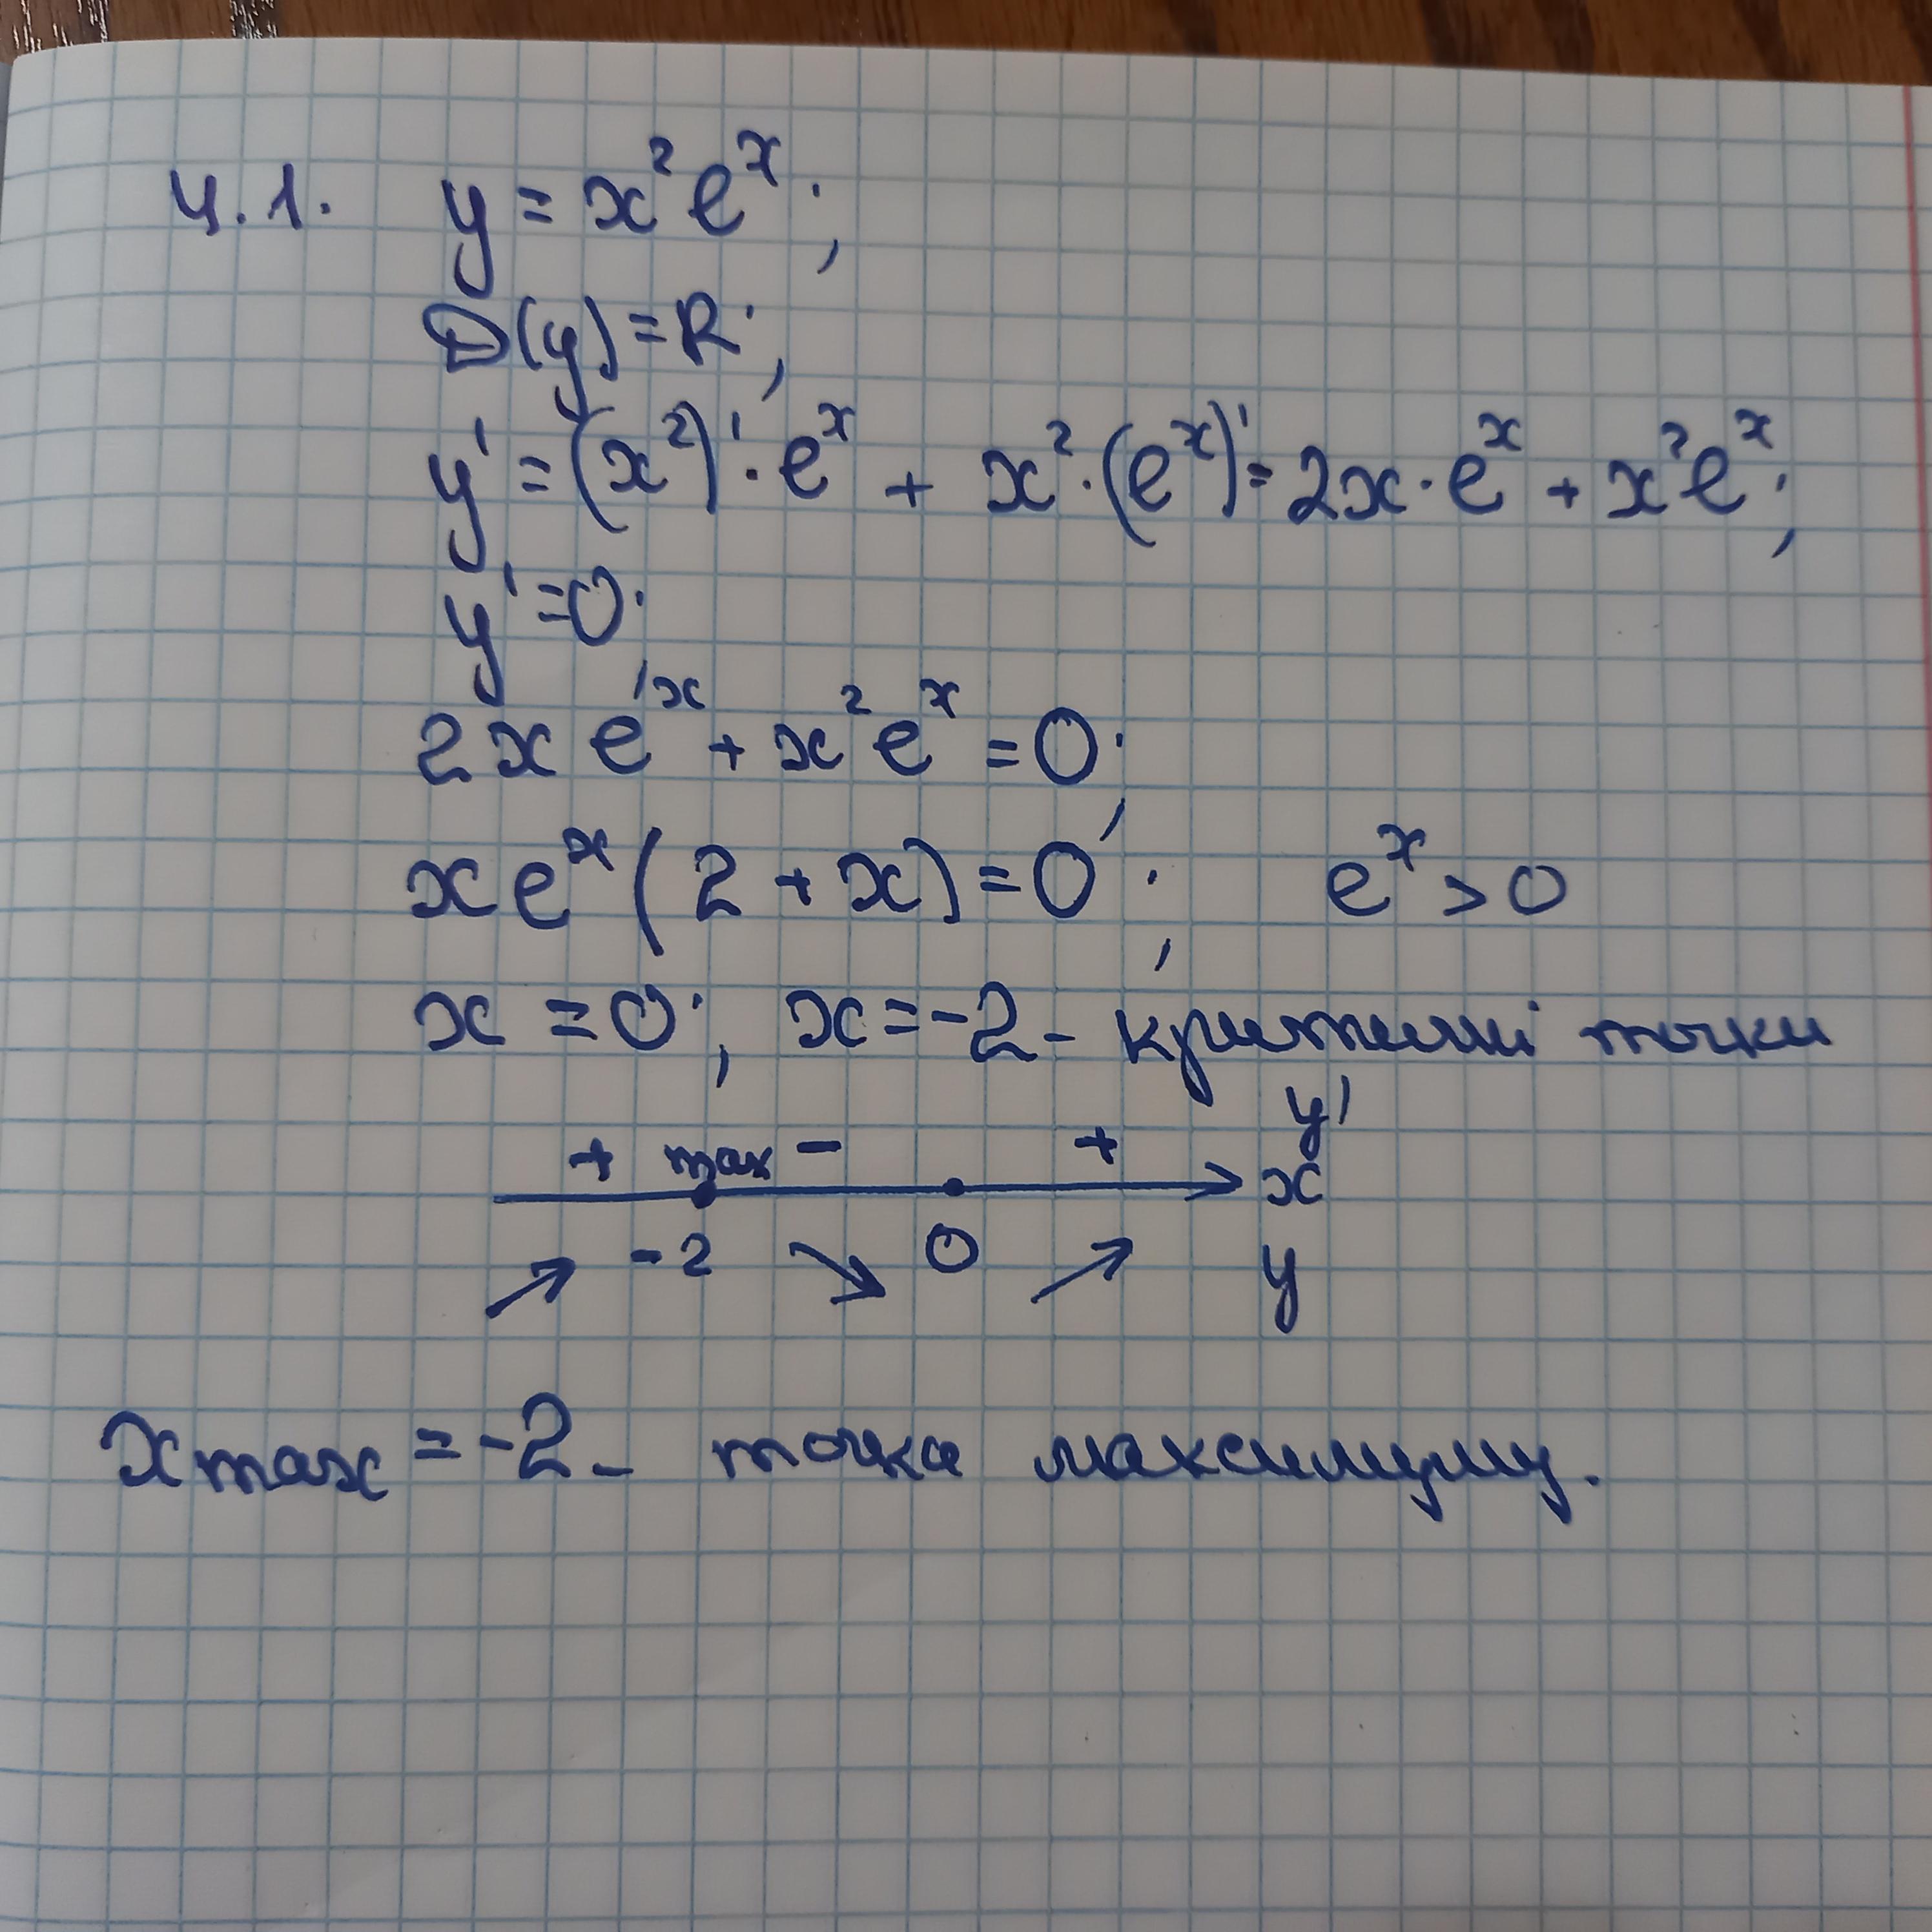 4.1. y = x²eˣ;
D(y) = R;
y' = (x²)' · eˣ + x² · (eˣ)' = 2x · eˣ + x²eˣ;
y' = 0;
2x eˣ + x²eˣ = 0;
x eˣ (2 + x) = 0; eˣ > 0
x = 0; x = -2 - критичні точки
y'
+ max - + x
-2 0 y
xmax = -2 - точка максимуму.